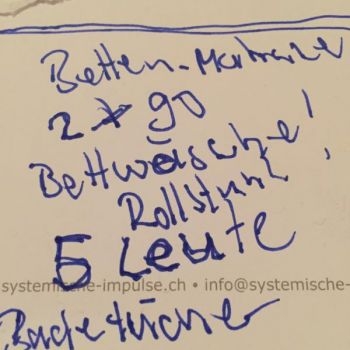 Betten-Matratze
2 x 90
Bettwäsche!
Rollstuhl
5 Leute
systemische-impulse.ch • info@systemische-
Badetücher